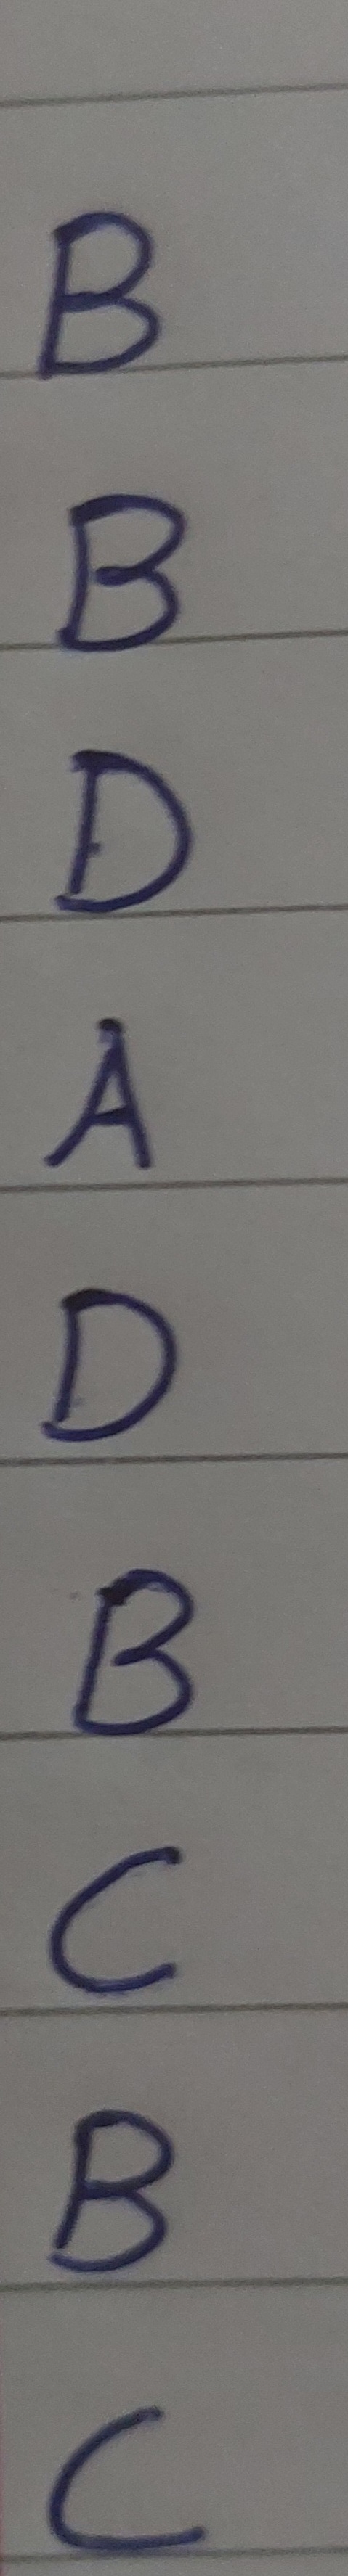 B
B
D
A
D
B
C
B
C